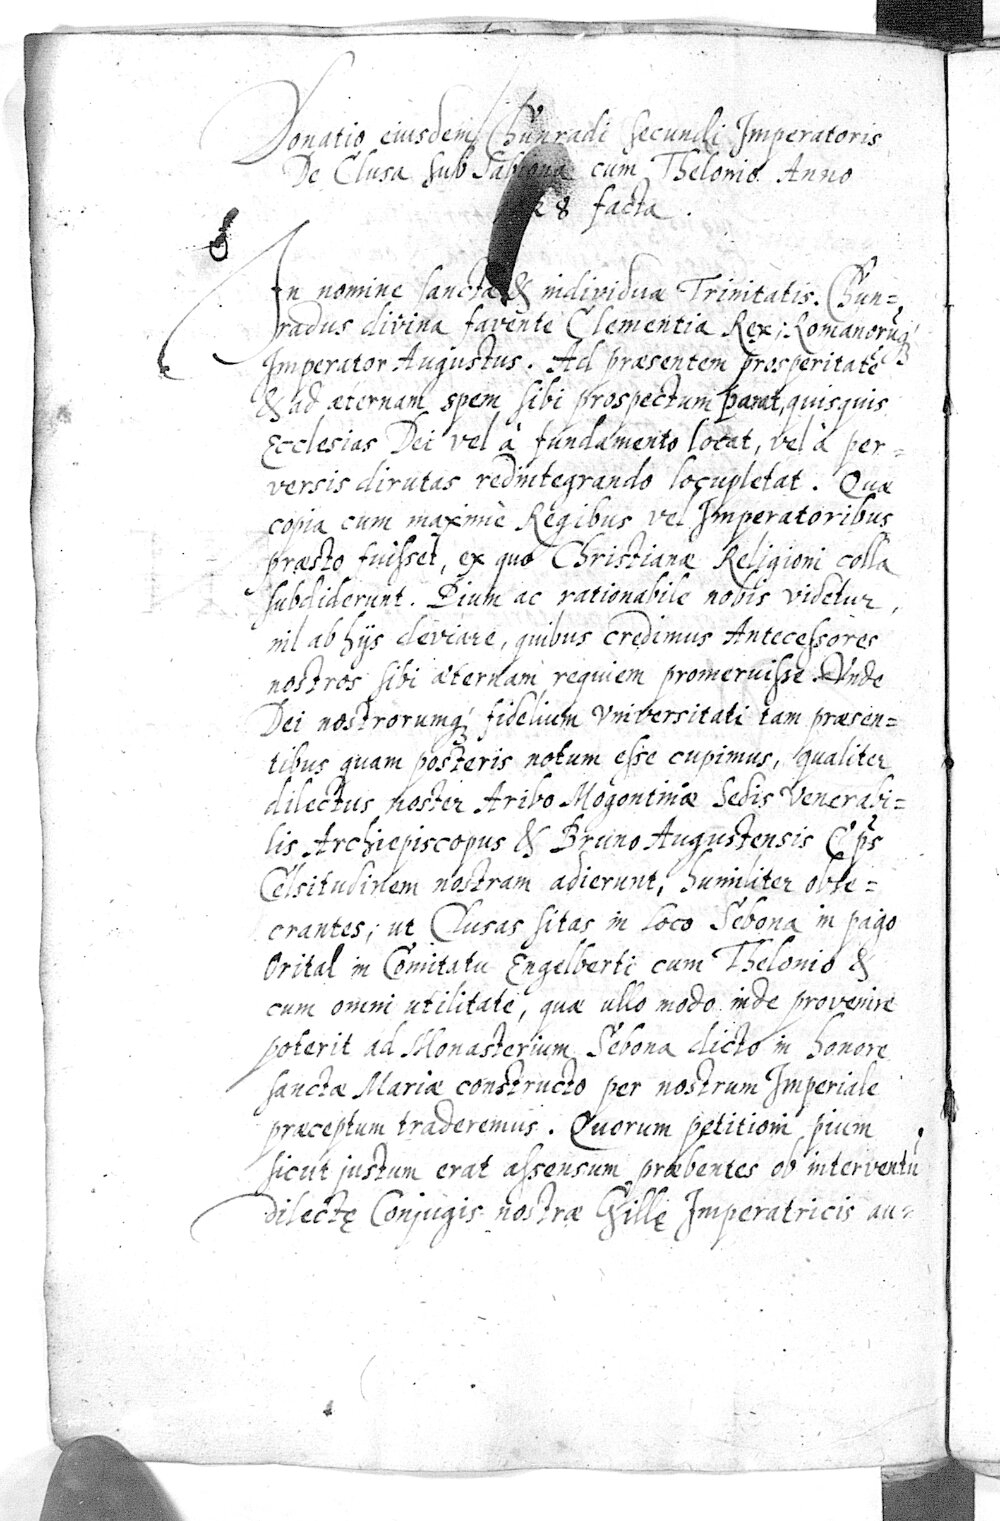 Donatio eiusdem Chunradi secundi Imperatoris
De Clusa sub Sabiona cum Thelonio Anno
28 facta.
8
In nomine sanctæ & individuæ Trinitatis. Chun=
radus divina favente Clementia Rex, Romanorūq́
Imperator Augustus. Ad præsentem prosperitatē
& ad æternam spem sibi prospectum parat, quisquis
Ecclesias Dei vel à fundamento locat, vel à per=
versis dirutas redintegrando locupletat. Quæ
copia cum maximè Regibus vel Imperatoribus
præsto fuisset, ex quo Christianæ Religioni colla
subdiderunt. Pium ac rationabile nobis videtur,
nil ab hijs deviare, quibus credimus Antecessores
nostros sibi æternam requiem promeruisse. Unde
Dei nostrorumq́ fidelium Vniversitati tam præsen=
tibus quam posteris notum esse cupimus, qualiter
dilectus noster Aribo Mogontinæ Sedis Venerabi=
lis Archiepiscopus & Bruno Augustensis Ep̄s
Celsitudinem nostram adierunt, humiliter obse=
crantes, ut Clusas sitas in loco Sebona in pago
Orital in Comitatu Engelberti cum Thelonio &
cum omni utilitate, quæ ullo modo inde provenire
poterit ad Monasterium Sebona dicto in honore
sanctæ Mariæ constructo per nostrum Imperiale
præceptum traderemus. Quorum petitioni pium
sicut justum erat assensum præbentes ob interventū
dilectę Conjugis nostræ Gillę Imperatricis au=